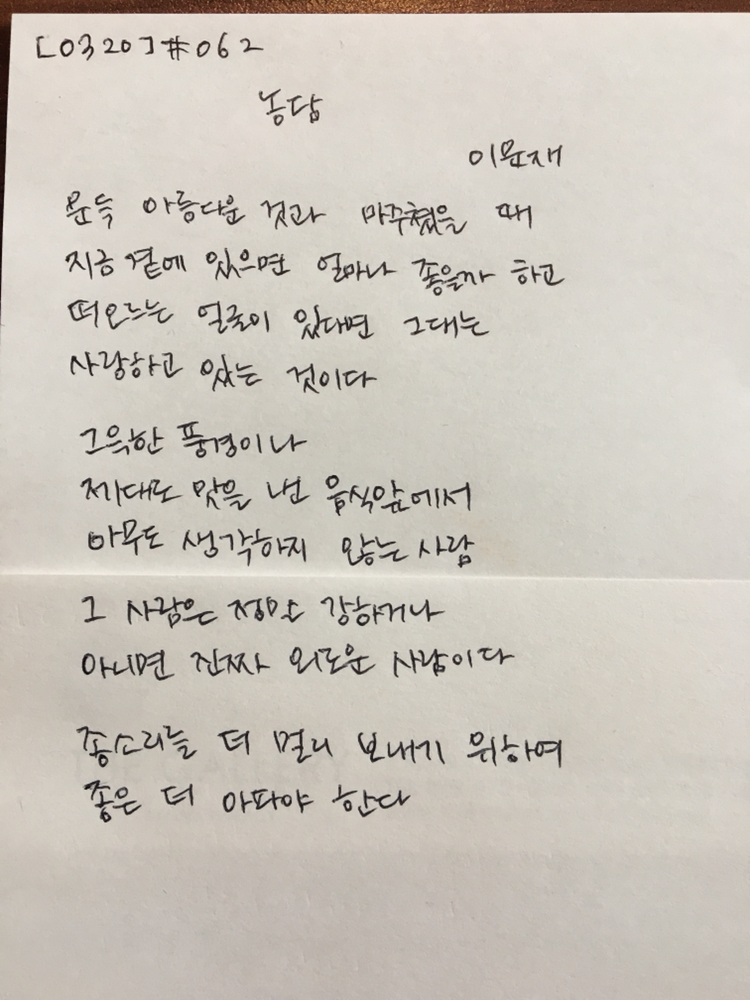 [0320]#062
농담
이문재
문득 아름다운 것과 마주쳤을 때
지금 곁에 있으면 얼마나 좋을까 하고
떠오르는 얼굴이 있다면 그대는
사랑하고 있는 것이다
그윽한 풍경이나
제대로 맛을 낸 음식앞에서
아무도 생각하지 않는 사람
그 사람은 정말 강하거나
아니면 진짜 외로운 사람이다
종소리를 더 멀리 보내기 위하여
종은 더 아파야 한다